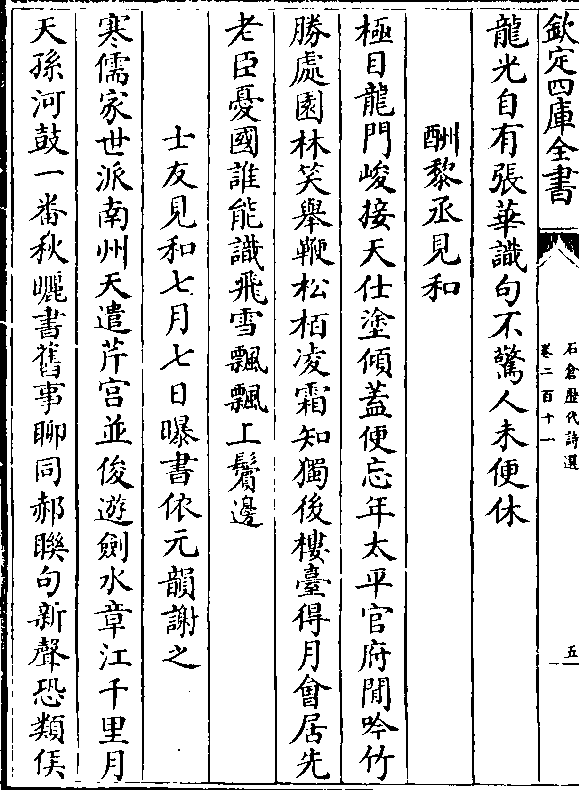 欽定四庫全書
石倉歷代詩選
卷二百十一
五
龍光自有張華識句不驚人未便休
酬黎丞見和
極目龍門峻接天仕塗傾蓋便忘年太平官府閒吟竹
勝處園林笑舉鞭松栢凌霜知獨後樓臺得月會居先
老臣憂國誰能識飛雪飄飄上鬢邊
士友見和七月七日曝書依元韻謝之
寒儒家世派南州天遣芹宮並俊遊劍水章江千里月
天孫河鼓一番秋曬書舊事聊同郝聯句新聲恐類侯